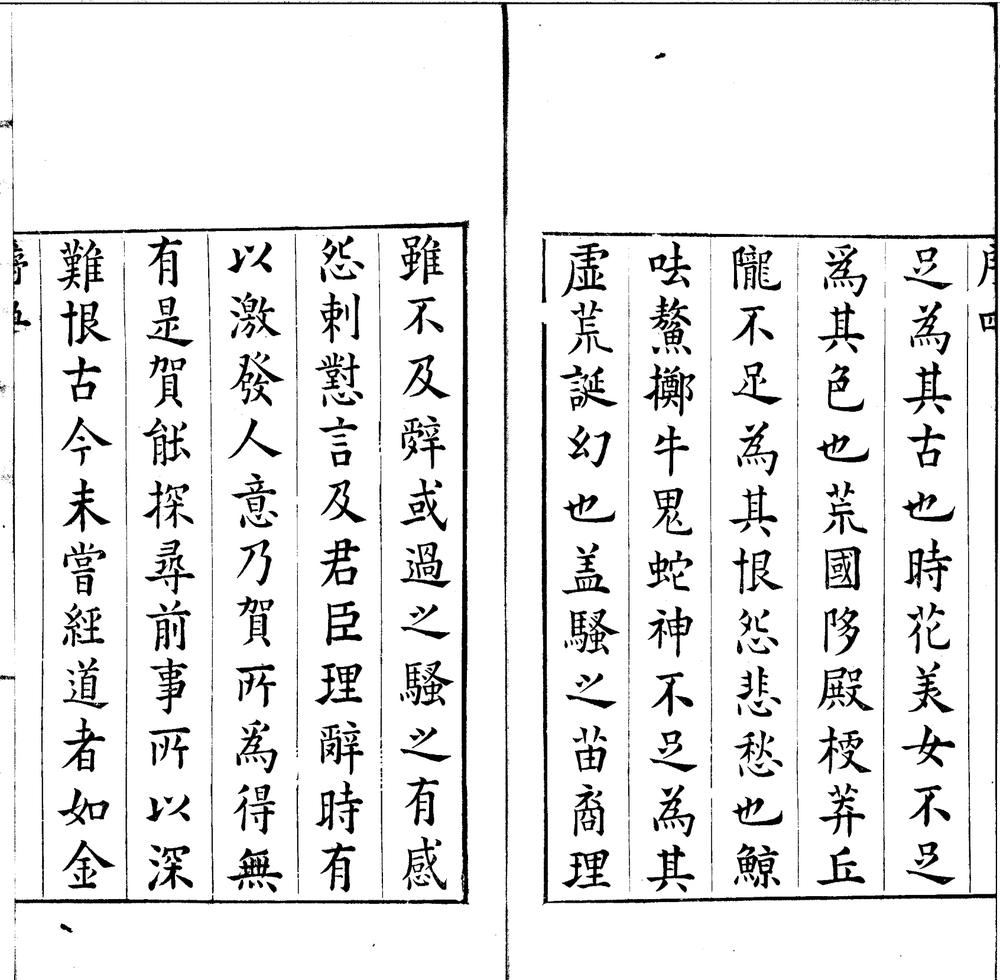 足為其古也時花美女不足
爲其色也荒國陊殿梗莽丘
隴不足為其恨怨悲愁也鯨
呿鰲擲牛鬼蛇神不足為其
虛荒誕幻也盖騷之苗裔理
雖不及辭或過之騷之有感
怨刺懟言及君臣理辭時有
以激發人意乃賀所爲得無
有是賀能探尋前事所以深
難恨古今未嘗經道者如金